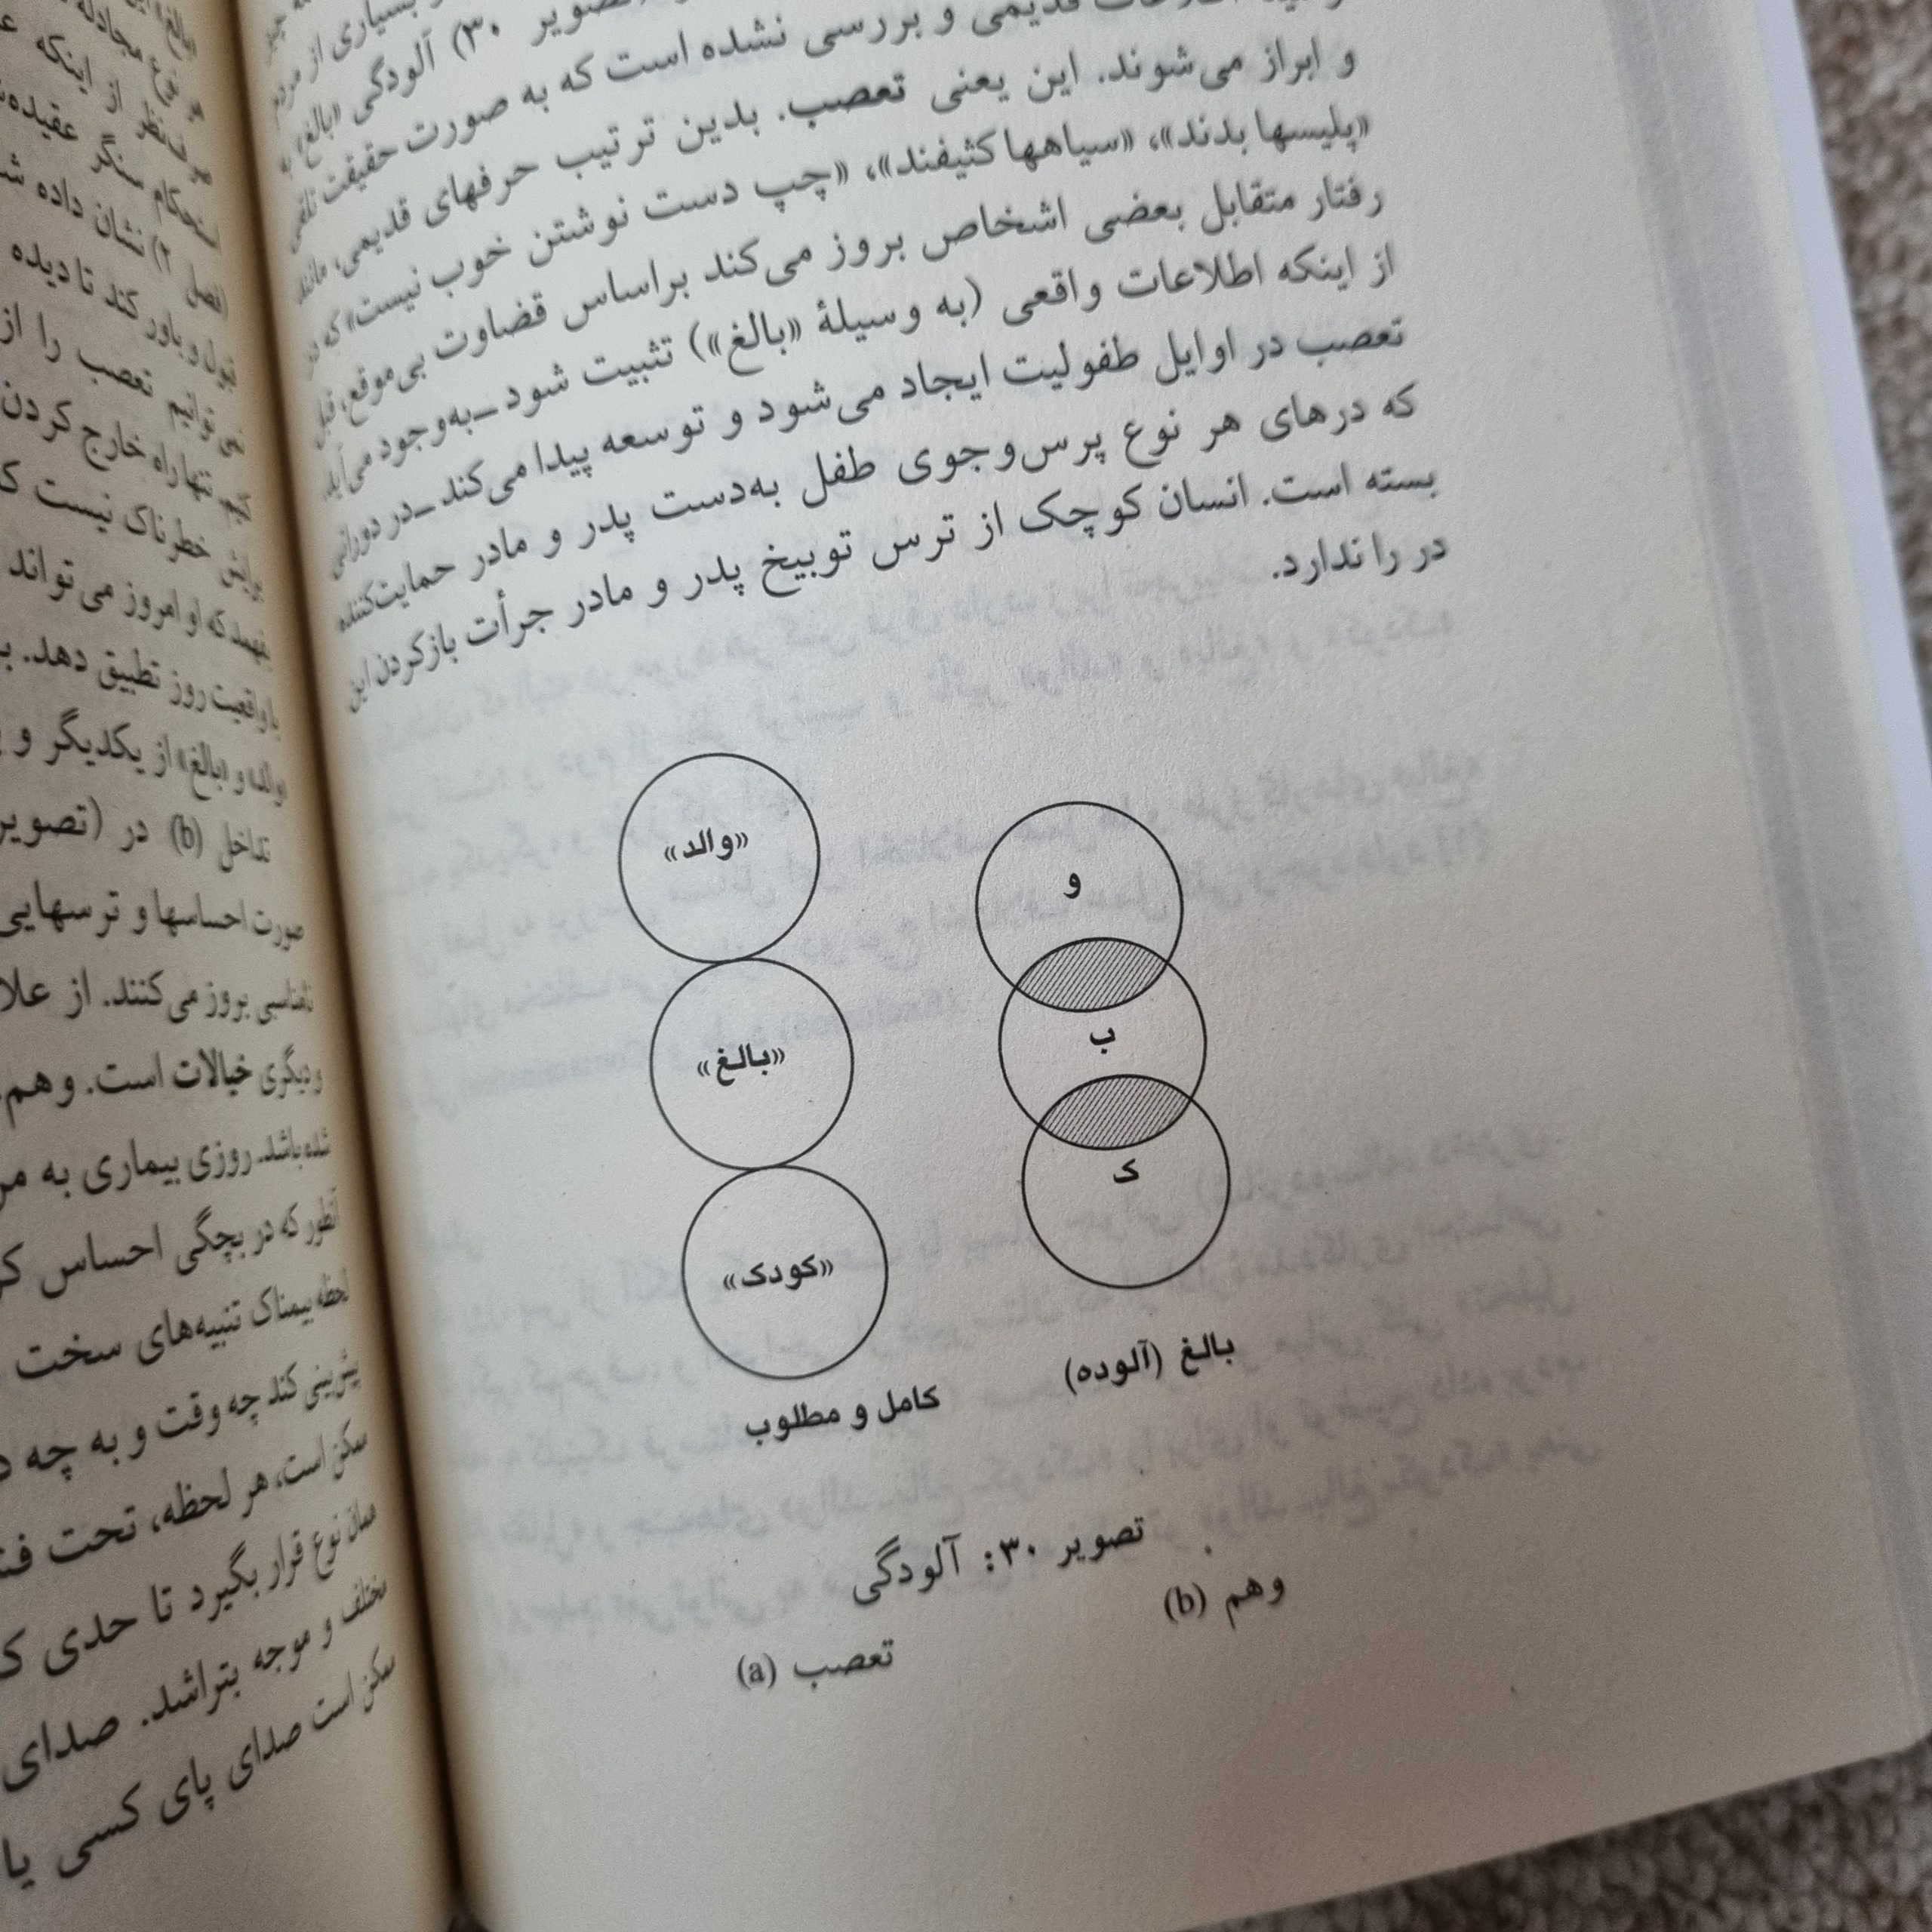 بسیاری از مردم
تصویر ۳۰) آلودگی «بالغ» به
قدیمی و بررسی نشده است که به صورت حقیقت تلقی
و ابراز می‌شوند. این یعنی تعصب. بدین ترتیب حرفهای قدیمی، مانند
«پلیسها بدند»، «سیاهها کثیفند»، «چپ دست نوشتن خوب نیست» که در
رفتار متقابل بعضی اشخاص بروز می‌کند براساس قضاوت بی‌موقع، قبل
از اینکه اطلاعات واقعی (به وسیلهٔ «بالغ») تثبیت شود ـ به‌وجود می‌آید.
تعصب در اوایل طفولیت ایجاد می‌شود و توسعه پیدا می‌کند ـ در دورانی
که درهای هر نوع پرس‌وجوی طفل به‌دست پدر و مادر حمایت‌کننده
بسته است. انسان کوچک از ترس توبیخ پدر و مادر جرأت بازکردن این
در را ندارد.
«والد»
«بالغ»
«کودک»
کامل و مطلوب
و
ب
ک
بالغ (آلوده)
تصویر ۳۰: آلودگی
وهم (b)
تعصب (a)
از اینکه
استحکام سنگر
فصل ۲) نشان داده
قبول و باور کند تا دیده
نمی‌توانیم تعصب را از
کنیم. تنها راه خارج کردن
برایش خطرناک نیست
بفهمد که او امروز می‌تواند
باواقعیت روز تطبیق دهد.
«والد» و «بالغ» از یکدیگر و
تداخل (b) در (تصویر
صورت احساسها و ترسهایی
بروز می‌کنند. از
و دیگری خیالات است. وهم
شده باشد. روزی بیماری به
آنطور که در بچگی احساس
لحظه بیمناک تنبیه‌های سخت
پیش‌بینی کند چه وقت و به چه
ممکن است، هر لحظه، تحت
همان نوع قرار بگیرد تا حدی
مختلف و موجه بتراشد. صدای
ممکن است صدای پای کسی یا